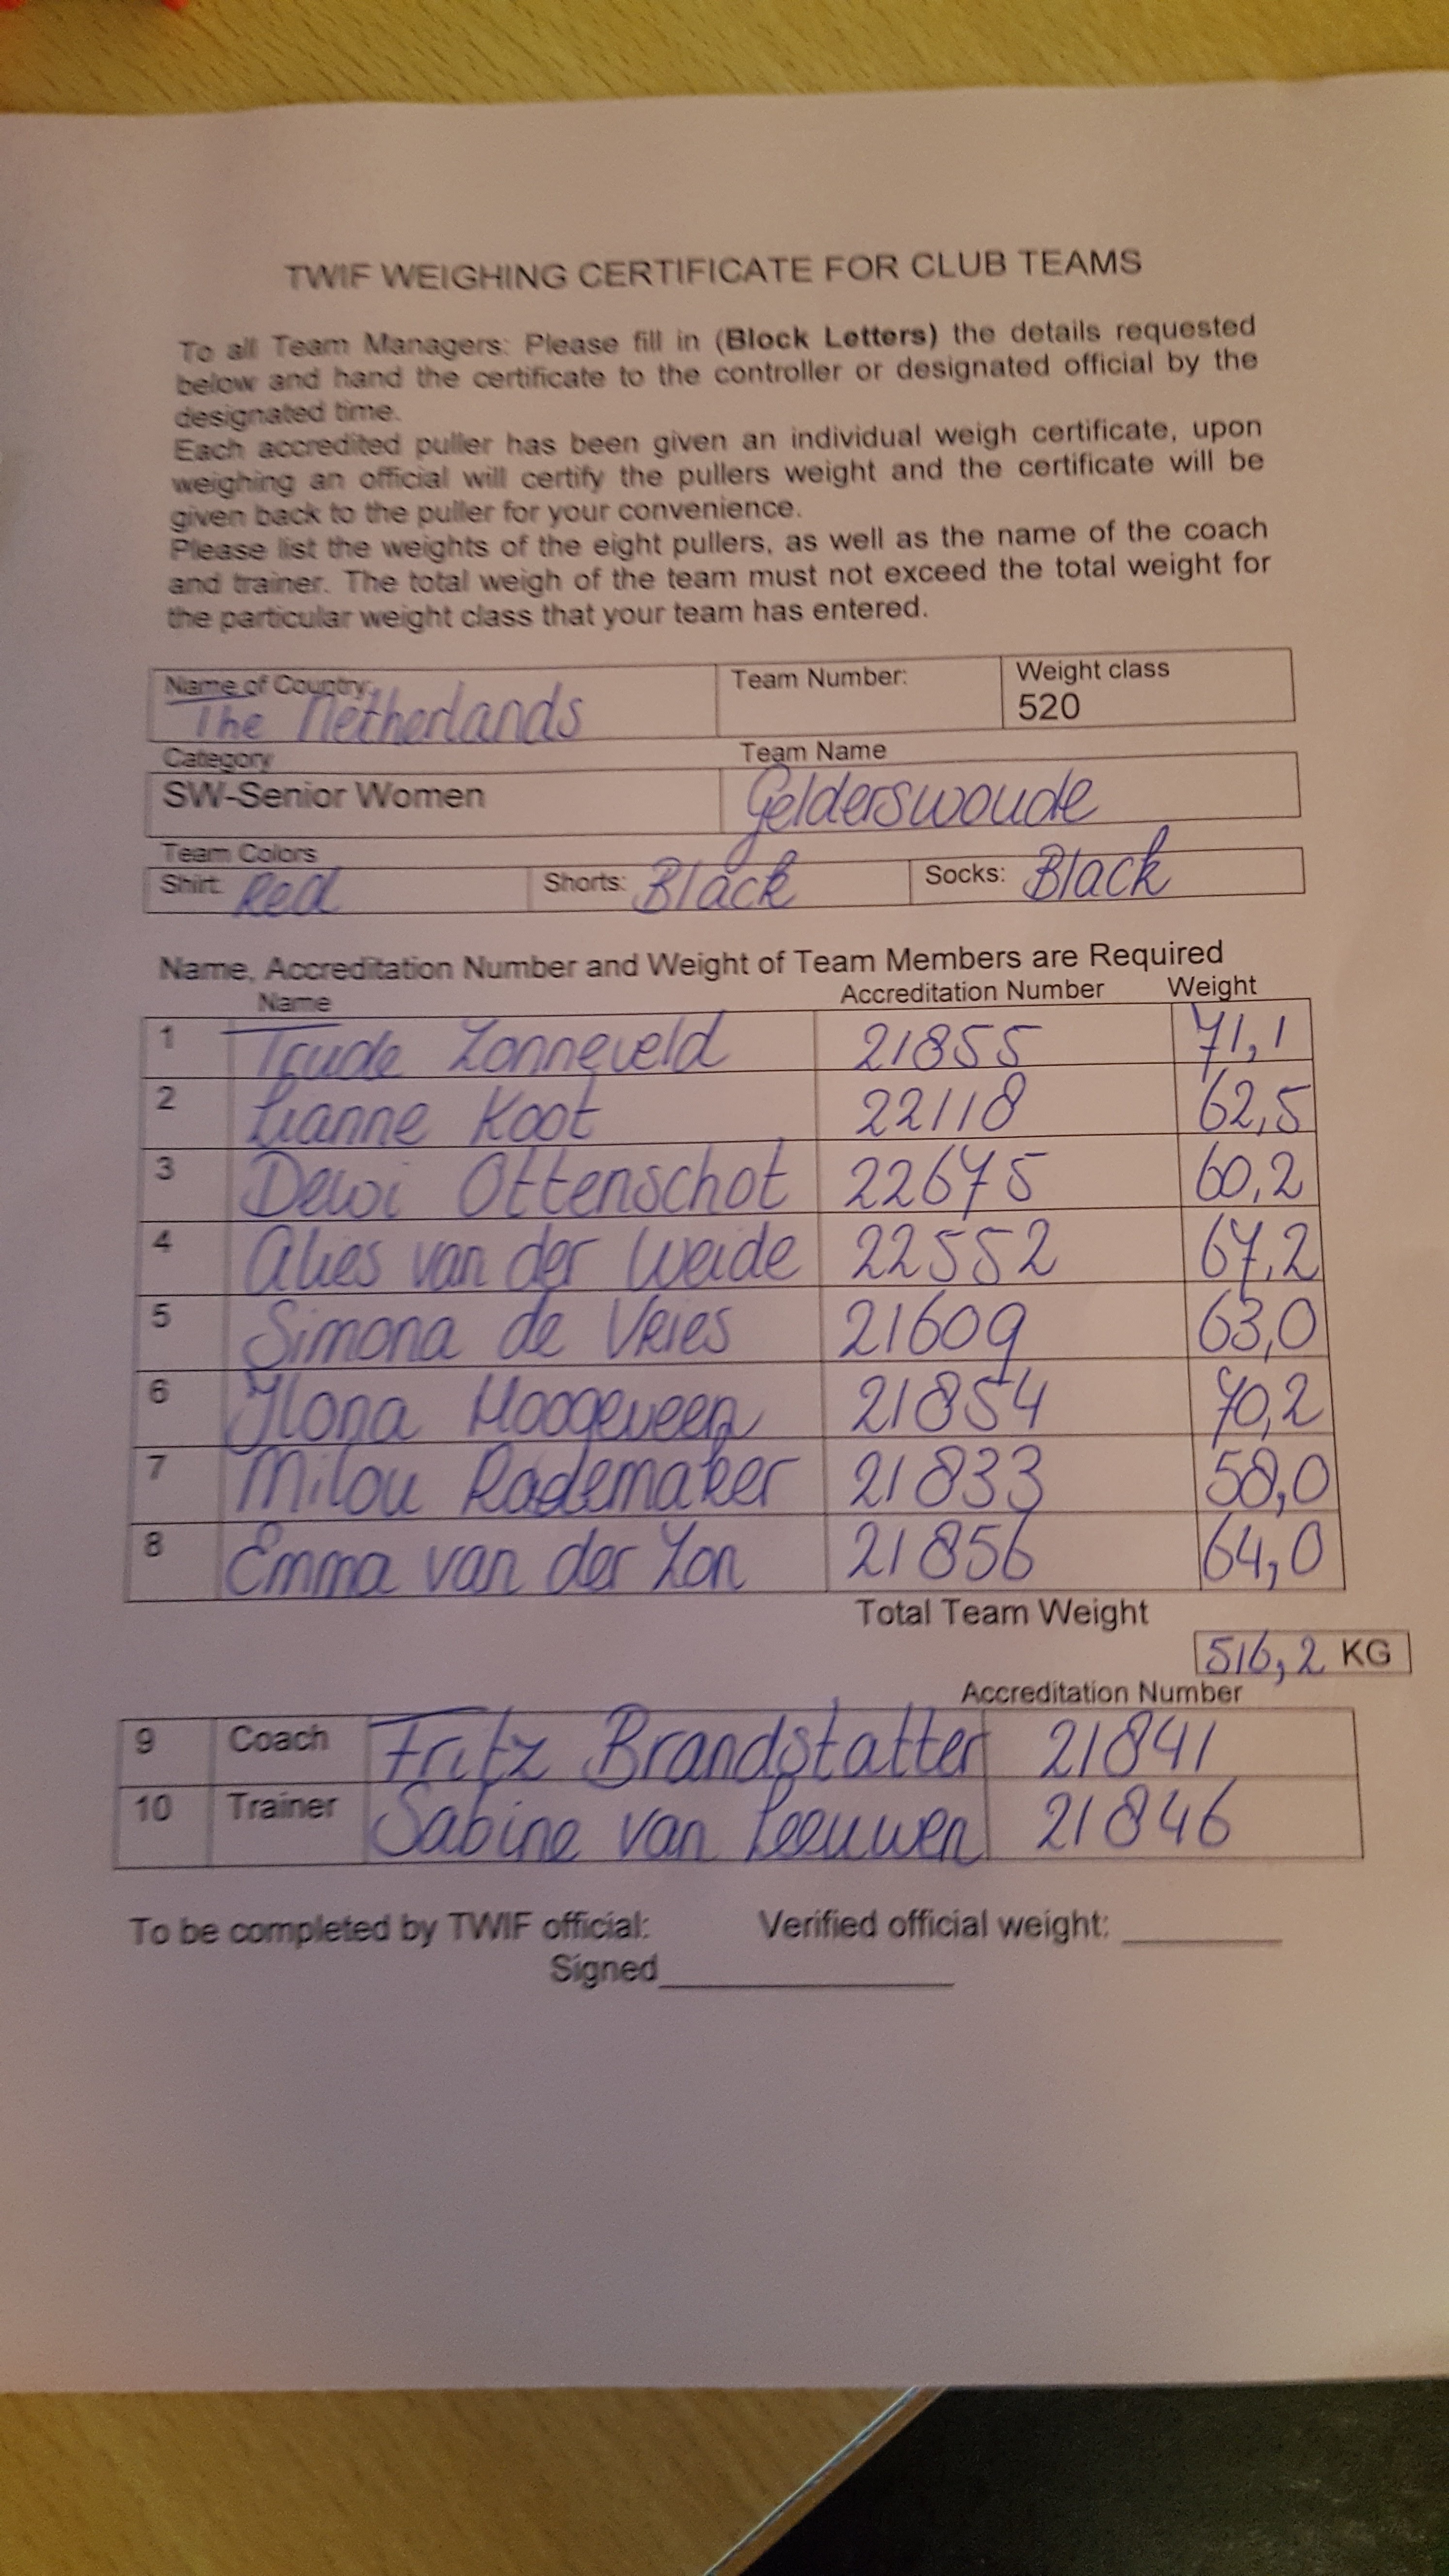 TWIF WEIGHING CERTIFICATE FOR CLUB TEAMS
To all Team Managers: Please fill in (Block Letters) the details requested
below and hand the certificate to the controller or designated official by the
designated time.
Each accredited puller has been given an individual weigh certificate, upon
weighing an official will certify the pullers weight and the certificate will be
given back to the puller for your convenience.
Please list the weights of the eight pullers, as well as the name of the coach
and trainer. The total weigh of the team must not exceed the total weight for
the particular weight class that your team has entered.
Name of Country: Team Number: Weight class
The Netherlands 520
Category Team Name
SW-Senior Women Gelderswoude
Team Colors
Shirt: Red Shorts: Black Socks: Black
Name, Accreditation Number and Weight of Team Members are Required
Name Accreditation Number Weight
1 Trude Zonneveld 21855 71,1
2 Lianne Koot 22118 62,5
3 Dewi Ottenschot 22675 60,2
4 Alies van der Weide 22552 67,2
5 Simona de Vries 21609 63,0
6 Ilona Hoogeveen 21854 70,2
7 Milou Rademaker 21833 58,0
8 Emma van der Zon 21856 64,0
Total Team Weight
516,2 KG
Accreditation Number
9 Coach Fritz Brandstatter 21841
10 Trainer Sabine van Leeuwen 21846
To be completed by TWIF official: Verified official weight:
Signed